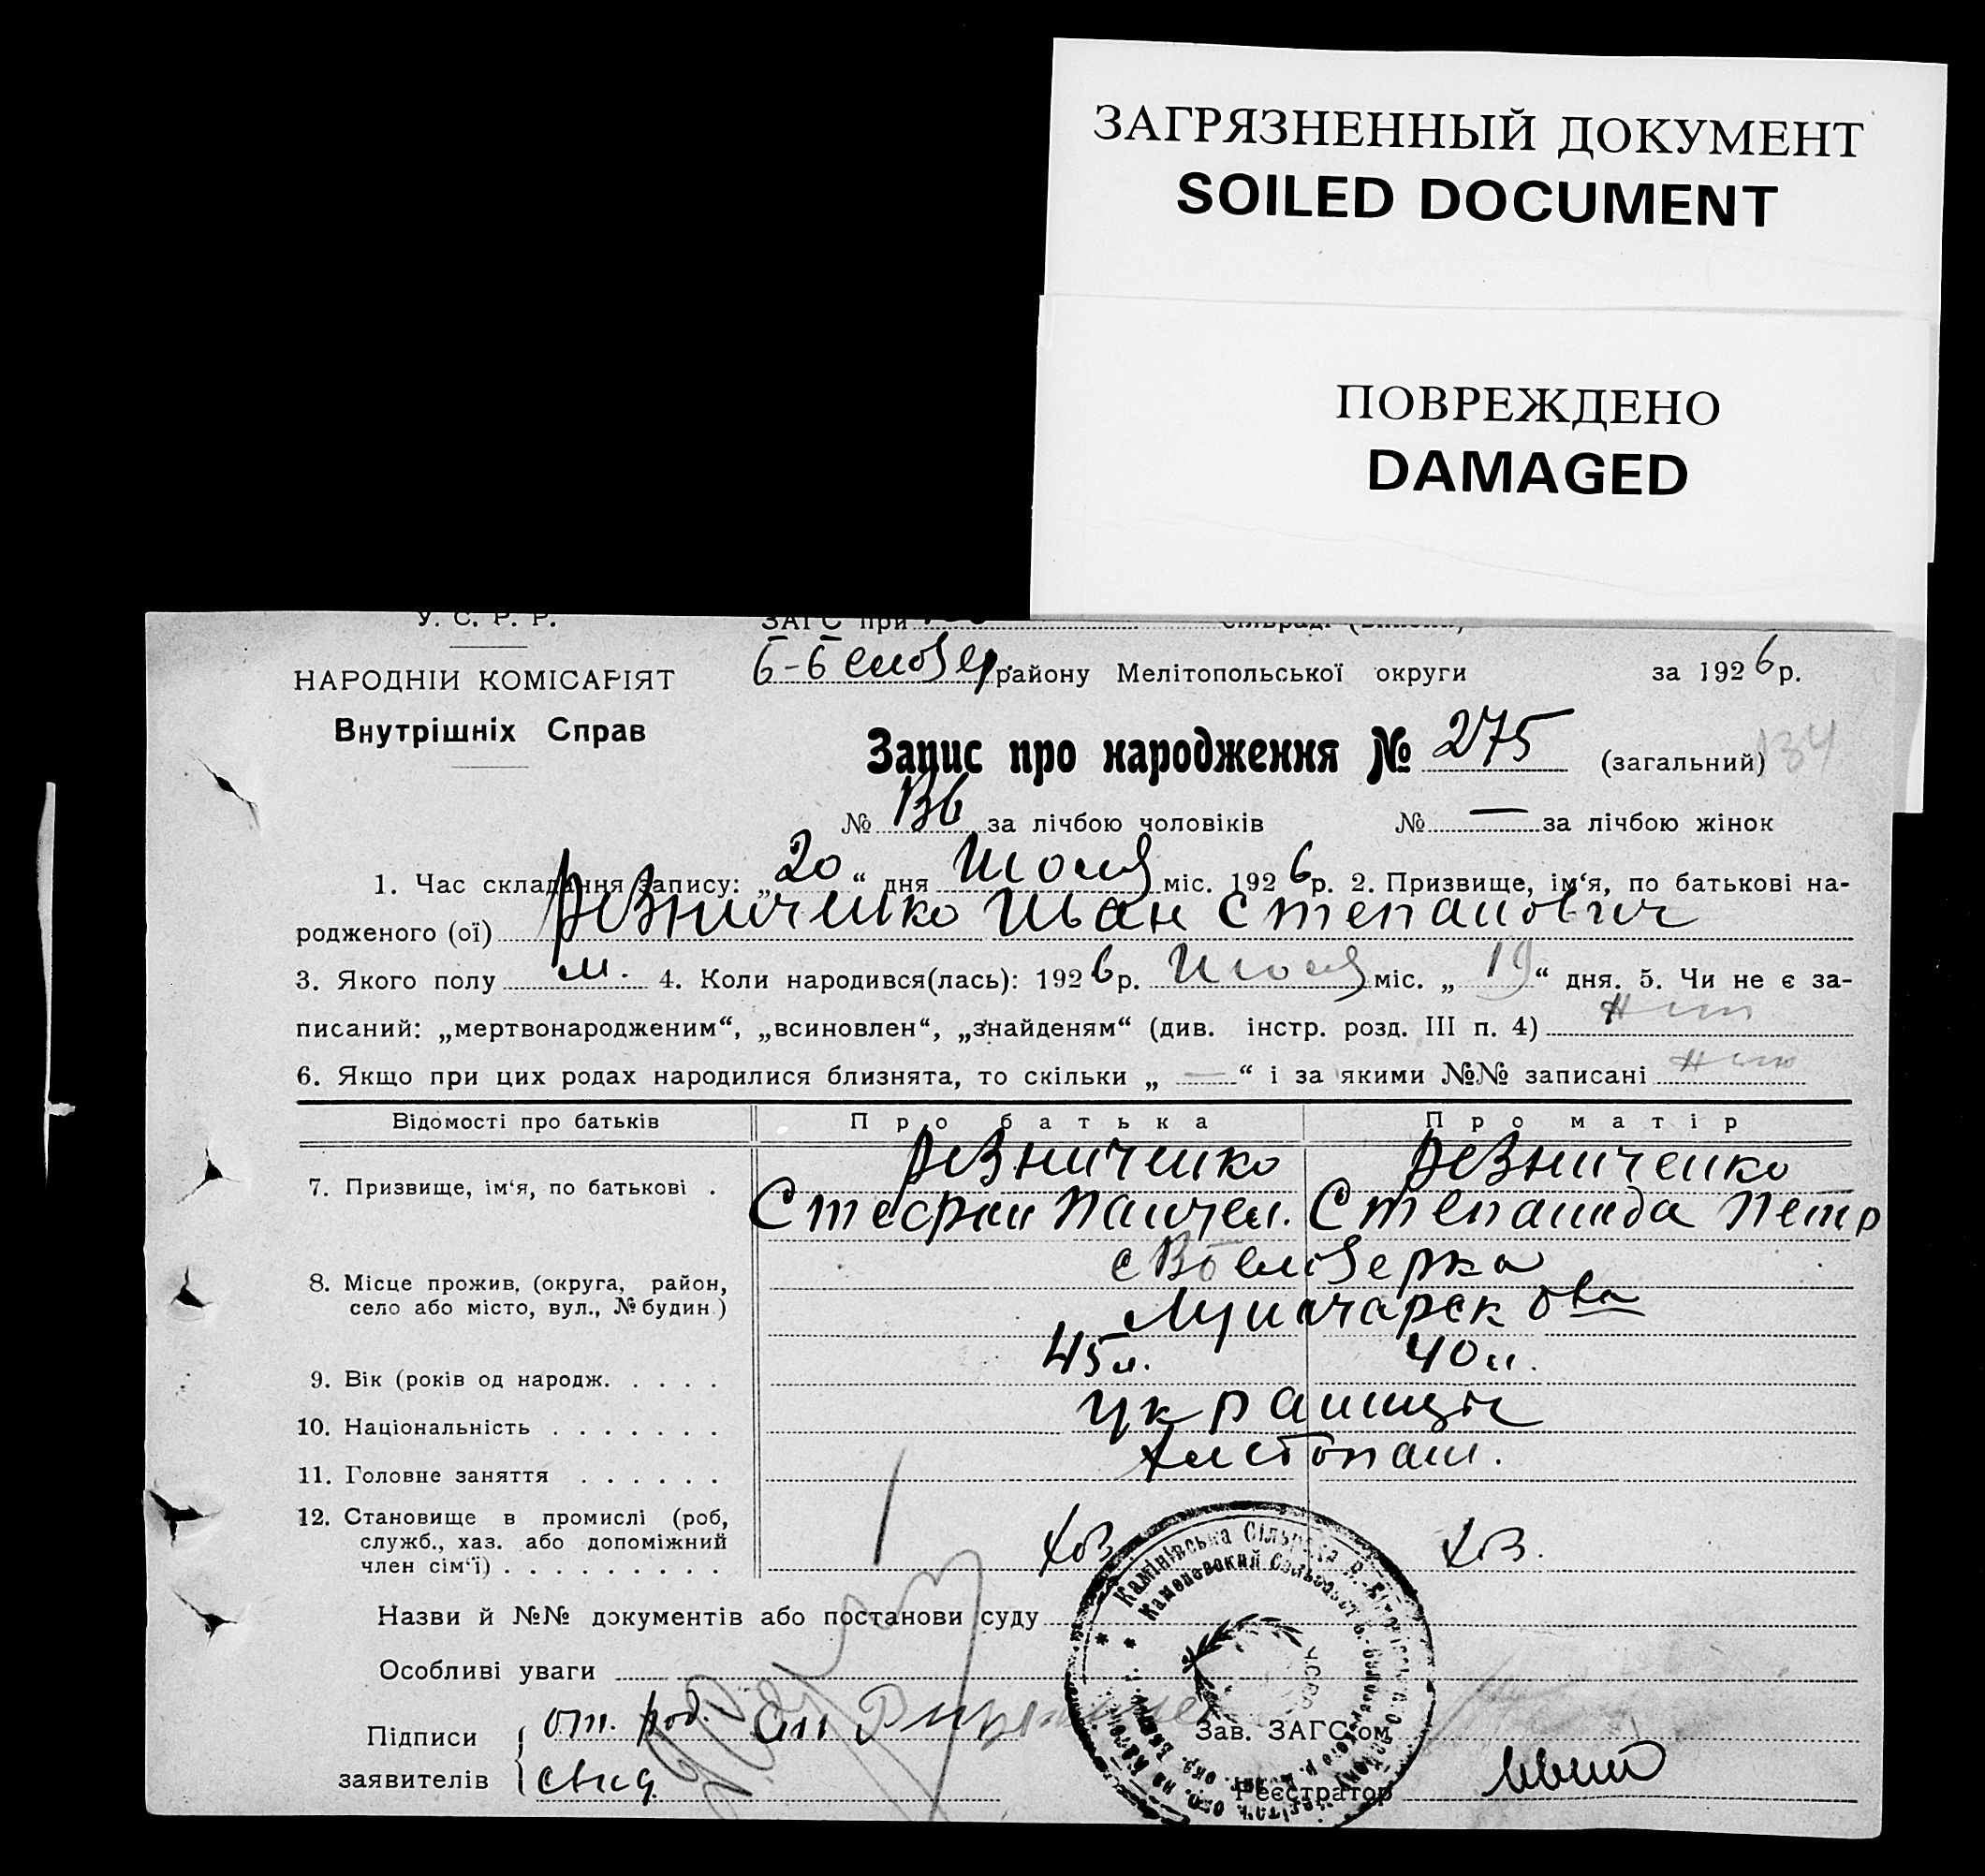 ЗАГРЯЗНЕННЫЙ ДОКУМЕНТ
SOILED DOCUMENT
ПОВРЕЖДЕНО
DAMAGED
У. С. Р. Р.
ЗАГС при
НАРОДНІЙ КОМІСАРІЯТ
Внутрішніх Справ
району Мелітопольської округи за 1926 р.
Запис про народження № 275 (загальний) 134
№ за лічбою чоловіків № — за лічбою жінок
1. Час складання запису: „20“ дня Июля міс. 1926 р. 2. Призвище, ім‘я, по батькові на-
родженого (ої) Резниченко Иван Степанович
3. Якого полу м. 4. Коли народився(лась): 1926 р. Июля міс. „19“ дня. 5. Чи не є за-
писаний: „мертвонародженим“, „всиновлен“, „знайденям“ (див. інстр. розд. III п. 4)
6. Якщо при цих родах народилися близнята, то скільки „—“ і за якими №№ записані
Відомості про батьків Про батька Про матір
7. Призвище, ім‘я, по батькові . Резниченко Резниченко
Стефан Панчел. Степанида Петр
8. Місце прожив, (округа, район,
село або місто, вул., № будин.)
с Белозерка
Луначарск
9. Вік (років од народж. . . . . 45 л. 40 л.
10. Національність . . . . . . . украинцы
11. Головне заняття . . . . . . хлебопаш.
12. Становище в промислі (роб,
служб., хаз. або допоміжний
член сім‘ї) . . . . . . . . . хоз хоз.
Назви й №№ документів або постанови суду
Особливі уваги
Підписи от. род.
заявителів свид.
Зав. ЗАГС‘ом
Реєстратор
Камінівська Сільрада
Каменовский Сельсовет
УСРР